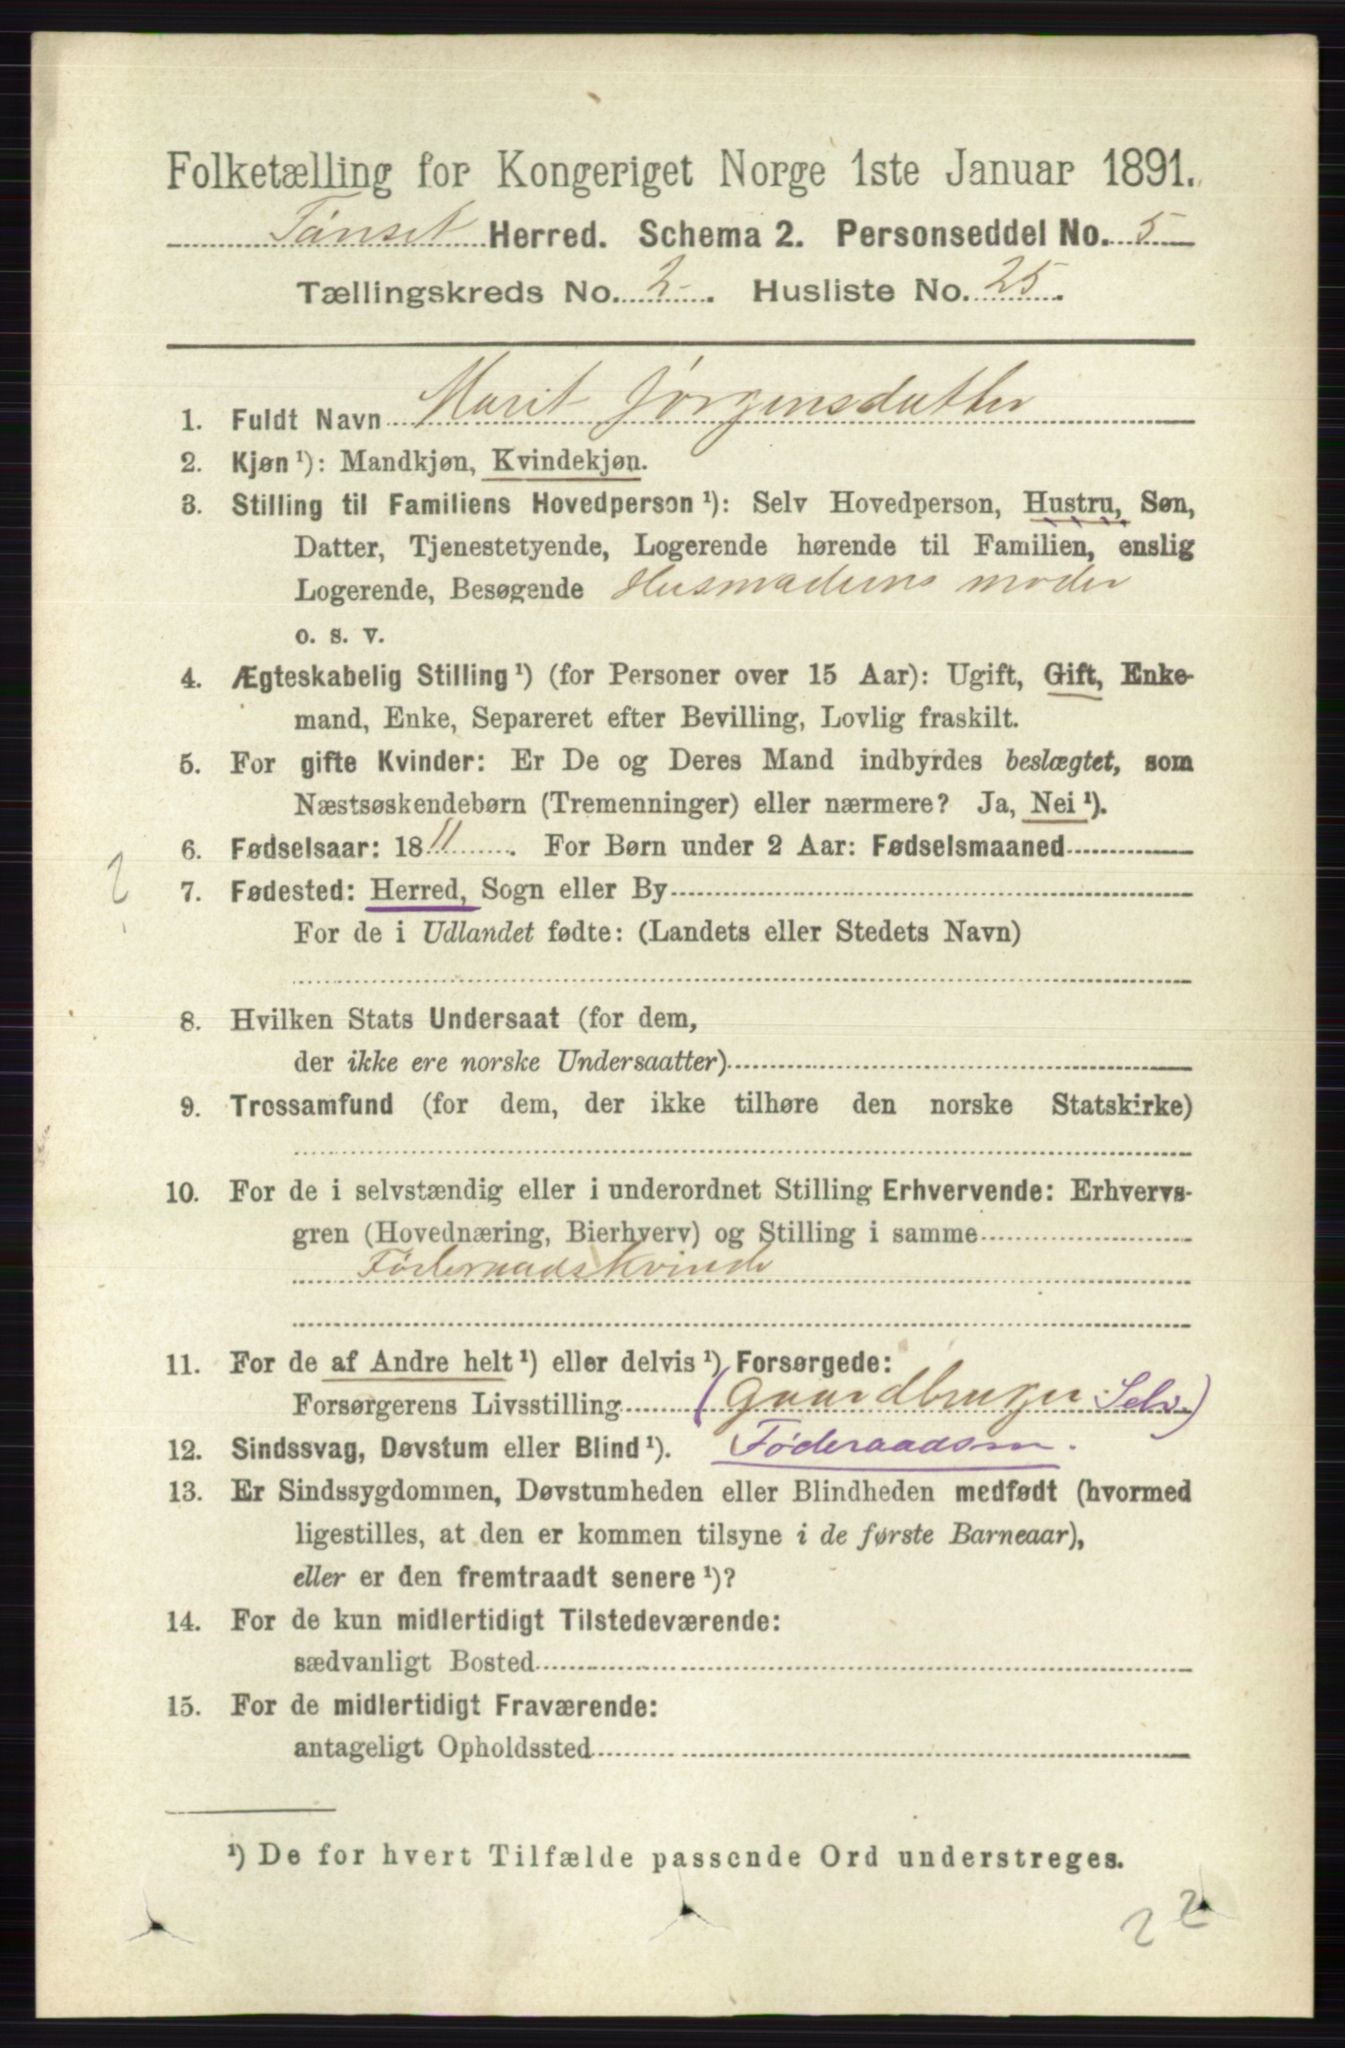 Folketælling for Kongeriget Norge 1ste Januar 1891.
Tønset Herred. Schema 2. Personseddel No. 5
Tællingskreds No. 2. Husliste No. 25.
1. Fuldt Navn Marit Jørgensdatter
2. Kjøn ¹): Mandkjøn, Kvindekjøn.
3. Stilling til Familiens Hovedperson ¹): Selv Hovedperson, Hustru, Søn,
Datter, Tjenestetyende, Logerende hørende til Familien, enslig
Logerende, Besøgende Husmoderens moder
o. s. v.
4. Ægteskabelig Stilling ¹) (for Personer over 15 Aar): Ugift, Gift, Enke-
mand, Enke, Separeret efter Bevilling, Lovlig fraskilt.
5. For gifte Kvinder: Er De og Deres Mand indbyrdes beslægtet, som
Næstsøskendebørn (Tremenninger) eller nærmere? Ja, Nei ¹).
6. Fødselsaar: 1811. For Børn under 2 Aar: Fødselsmaaned
7. Fødested: Herred, Sogn eller By
For de i Udlandet fødte: (Landets eller Stedets Navn)
8. Hvilken Stats Undersaat (for dem,
der ikke ere norske Undersaatter)
9. Trossamfund (for dem, der ikke tilhøre den norske Statskirke)
10. For de i selvstændig eller i underordnet Stilling Erhvervende: Erhvervs-
gren (Hovednæring, Bierhverv) og Stilling i samme
Føderaadskvinde
11. For de af Andre helt ¹) eller delvis ¹) Forsørgede:
Forsørgerens Livsstilling (Gaardbruger Selv.)
12. Sindssvag, Døvstum eller Blind ¹). Føderaadsm.
13. Er Sindssygdommen, Døvstumheden eller Blindheden medfødt (hvormed
ligestilles, at den er kommen tilsyne i de første Barneaar),
eller er den fremtraadt senere ¹)?
14. For de kun midlertidigt Tilstedeværende:
sædvanligt Bosted
15. For de midlertidigt Fraværende:
antageligt Opholdssted
¹) De for hvert Tilfælde passende Ord understreges.
2 2